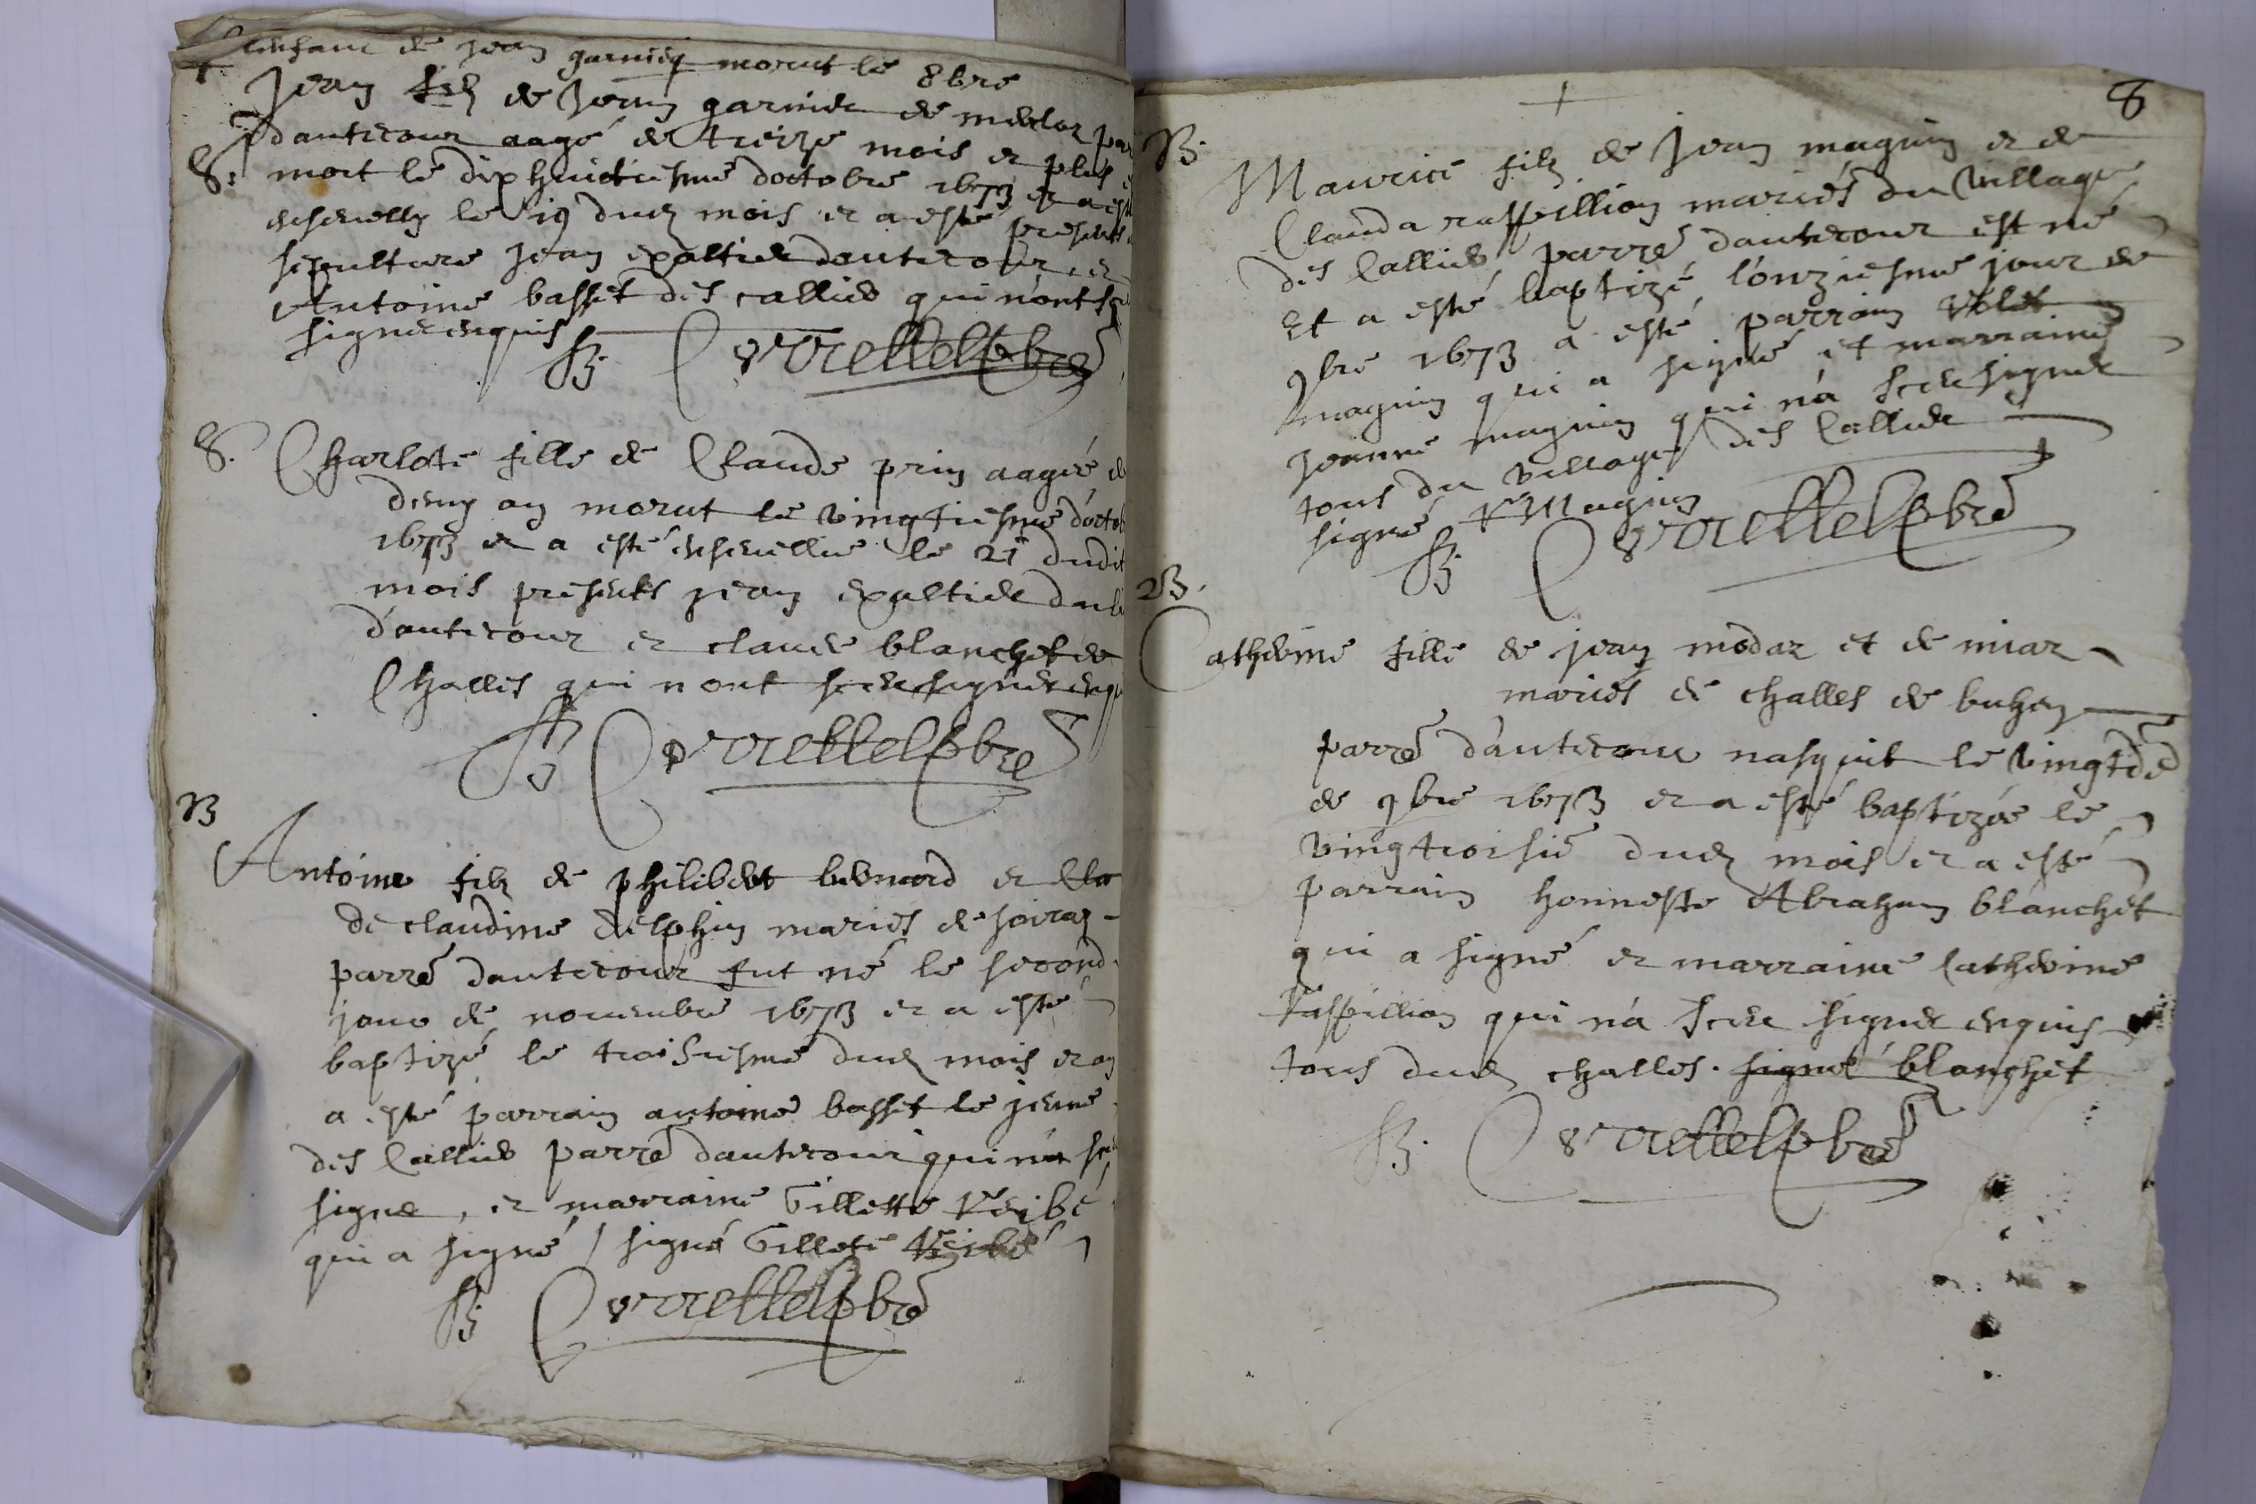 enfant de jean garnier morut le 8bre
Jean filz de Jean garnier de
dauticour aagé de treize mois et plus
S. mort le dixhuictiesme doctobre 1673 et a esté
ensevelly le 19 dud mois et a esté presents
sepulture jean exaltier dauticour, et
Antoine basset des calliers qui n'ont sceu
signer enquis
S. Charlote fille de Claude prin aagée de
demy an morut le vingtiesme d'octob
1673 et a esté ensevellie le 21 dudit
mois presents jean exaltier
d'auticour et claude blanchet de
Challes qui n'ont sceu signer enqu
B
Antoine filz de philibert bernard et
de claudine delphin mariés de
parre dauticour fut né le second
jour de novembre 1673 et a esté
baptizé le troisiesme dud mois et
a esté parrain antoine basset le jeune
des Callier parre dauticour qui n'a sceu
signer, et marraine Gillette Reibé
qui a signé / signé Gillete Reibé
8
B.
Maurice filz de Jean magnin et de
Clauda raffillion mariés du village
des Callier parre dauticour est né
Et a esté baptizé l'onziesme jour de
9bre 1673 a esté parrain
magnin qui a signé et marraine
jeanne magnin qui n'a sceu signer
tous du village des Callier
signé Magnin
B.
Catherine fille de jean modaz et de miar
mariés de challes de buhen
parre d'auticour nasquit le vingtde
de 9bre 1673 et a esté baptizée le
vingtroisie dud mois et a esté
parrain honneste Abraham blanchet
qui a signé et marraine Catherine
raffillion qui n'a sceu signer enquis
tous dud challes. signé blanchet